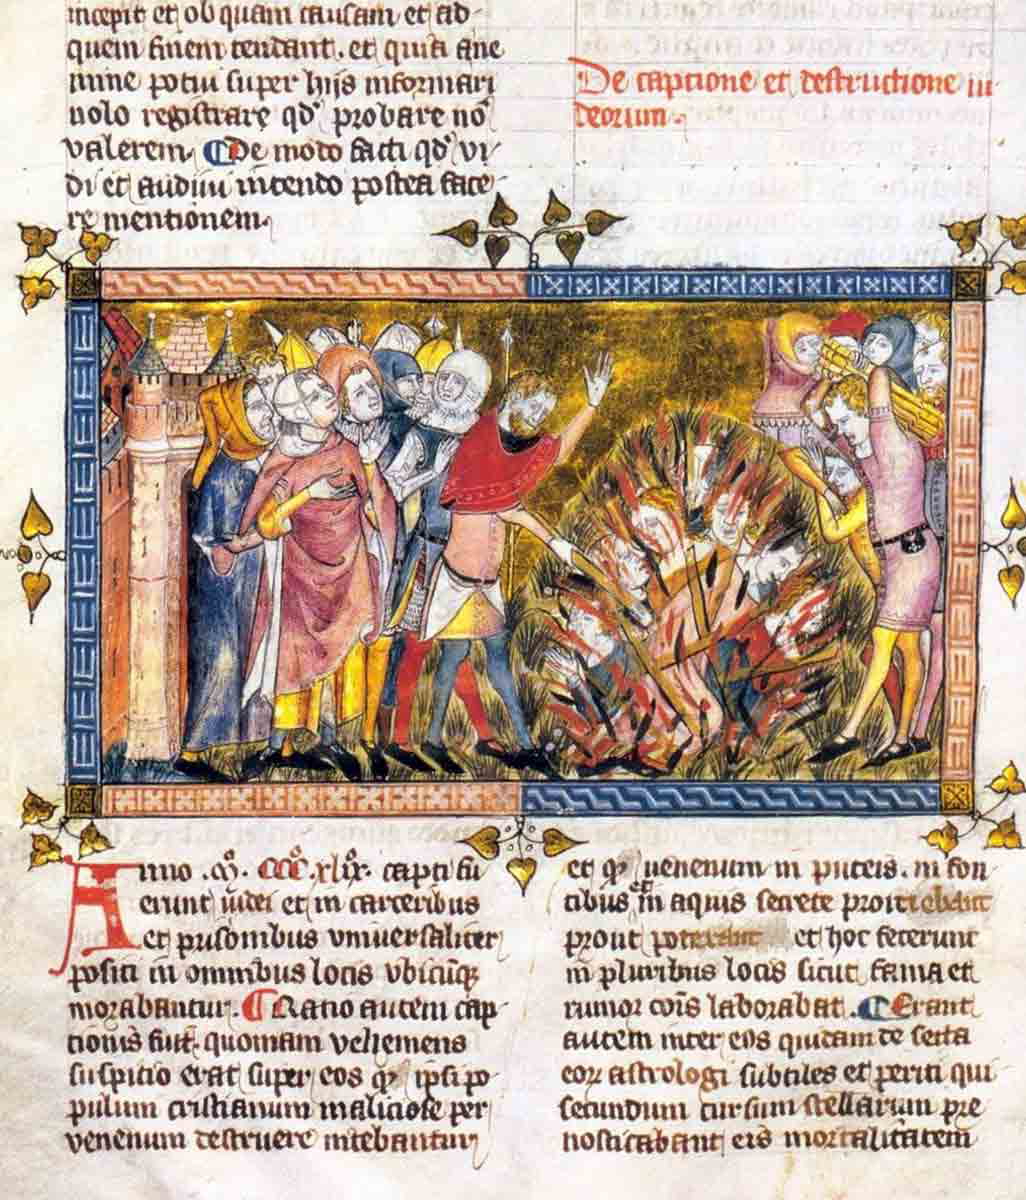 incepit et ob quam causam et ad-
quem finem tendant. et quia ane
mine potui super hijs informari
nolo registrare qd' probare nō
valerem. De modo facti qd' vi-
di et audiui intendo postea face
re mentionem.
De captione et destructione iu-
deorum.
Anno .mº. cccº xlixº. capti fu
erunt iudei et in carceribus
et prisonibus vniuersaliter
positi in omnibus locis vbicūqꝫ
morabantur. Ratio autem cap-
tionis fuit. quoniam vehemens
suspitio erat super eos qꝫ ipsi po-
pulum cristianum maliciose per
venenum destruere nitebantur
et qꝫ uenenum in puteis. in fon
tibus et in aquis secrete proiciebant
prout poterant et hoc fecerunt
in pluribus locis sicut fama et
rumor cōis laborabat. Erant
autem inter eos quidam de secta
eoꝝ astrologi subtiles et periti qui
secundum cursum stellarum pre
nosticabant eis mortalitatem